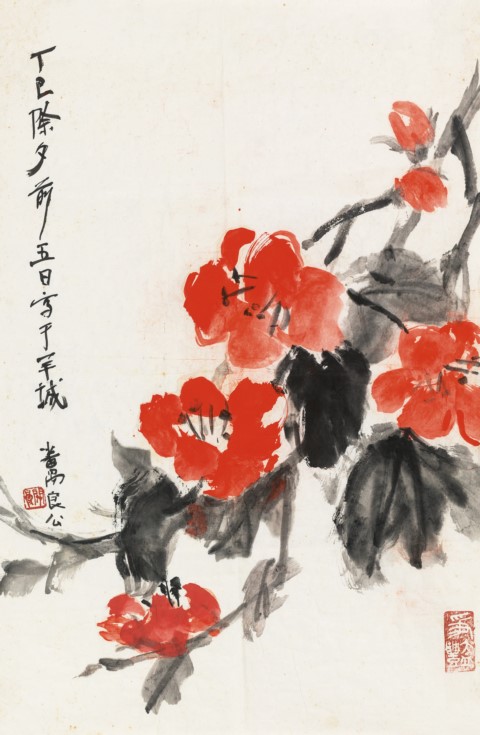 丁巳除夕前五日写于羊城
番禺良公